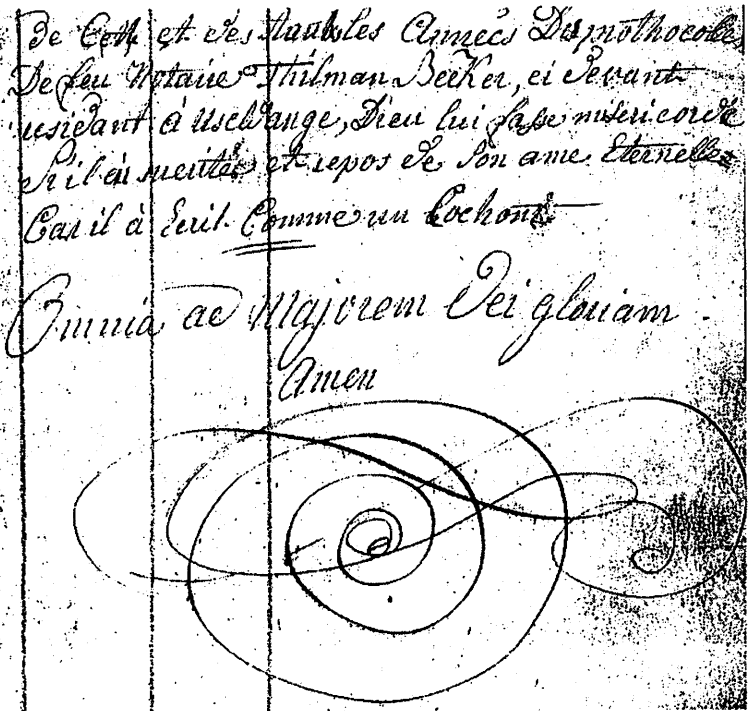 de Cett et des Années Du prothocole
De feu Notaire Thilman Becker, ci devant
residant à Uscldange, Dieu lui fasse misericorde
S'il en merite et repos de son ame Eternelle
Car il à Ecrit Comme un Cochont
Omnia ad Majorem Dei gloriam
Amen